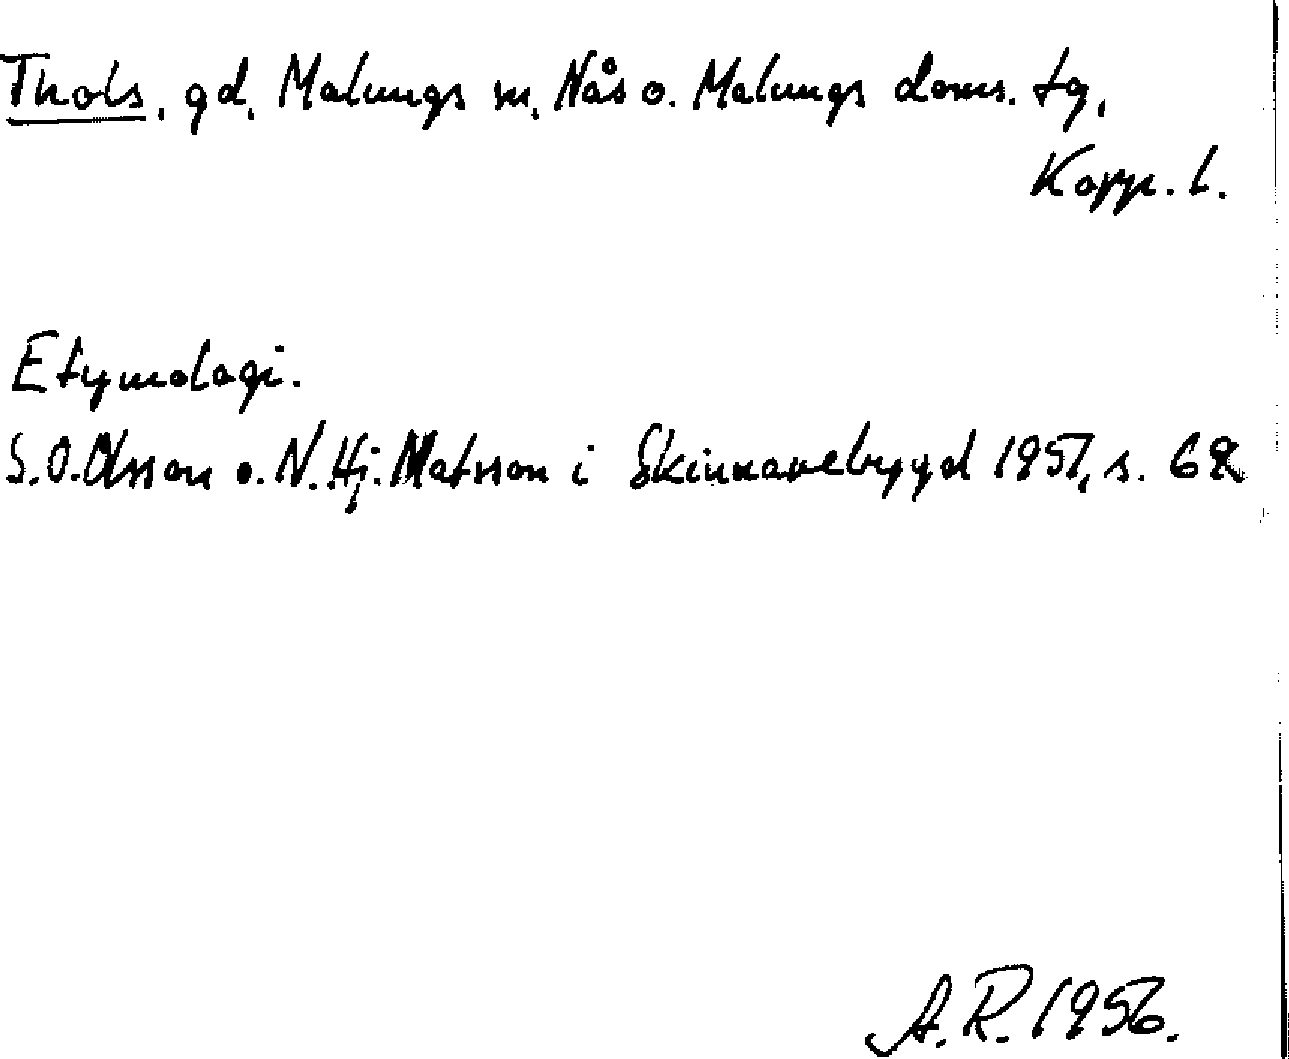 Thols, gd, Malungs sn, Nås o. Malungs doms. tg,
Kopp. l.
Etymologi.
S.O.Olsson o. N.Hj.Matsson i Skinnarebygd 1951, s. 62
A.R. 1956.